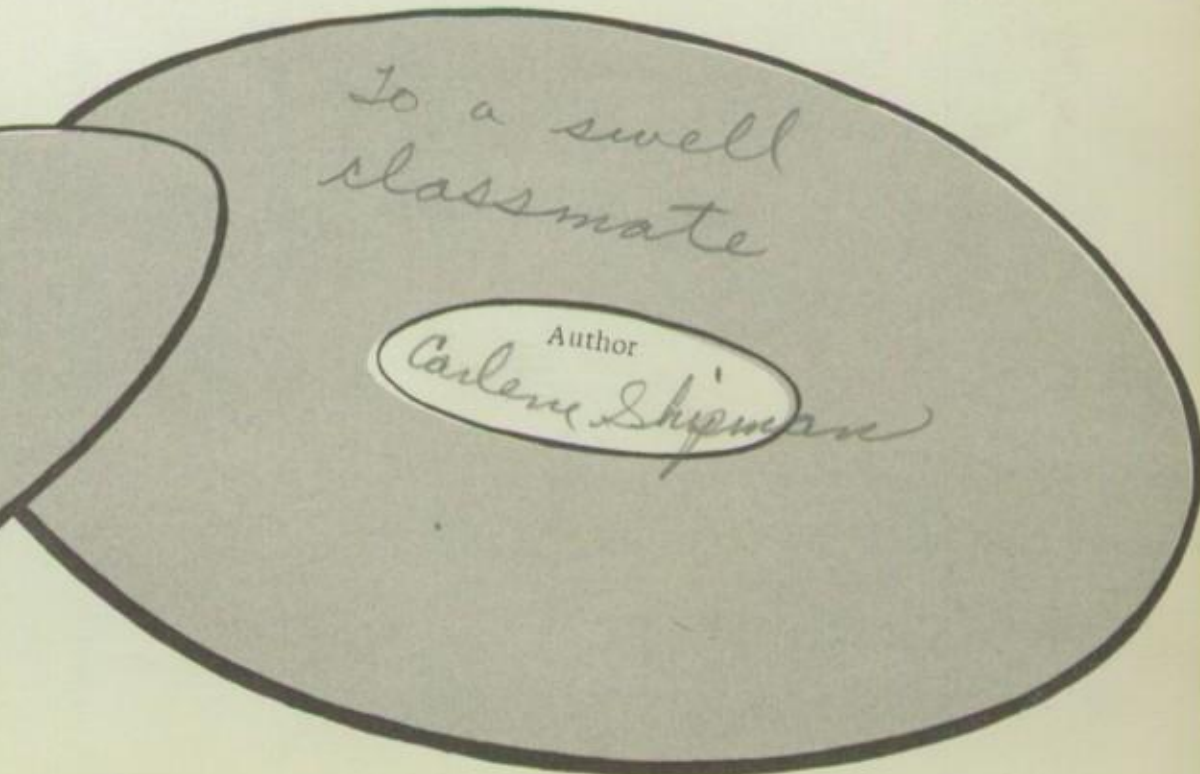 To a swell
classmate
Author
Carlene Shipman